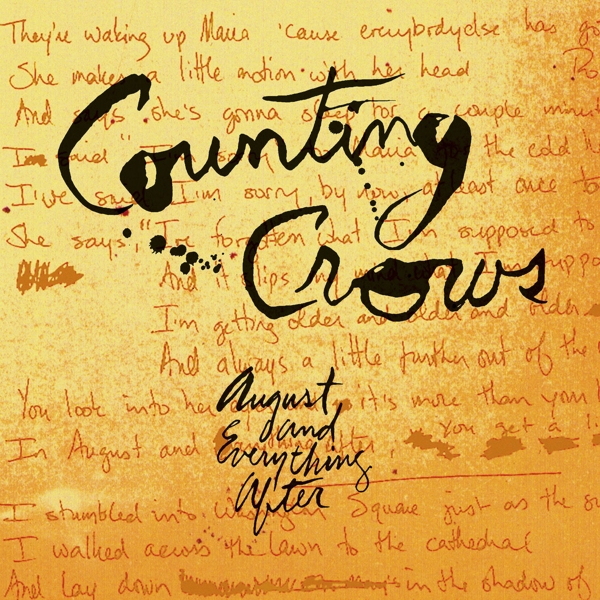 They're waking up Maria 'cause everybody else has go
She makes a little motion with her head
And says she's gonna sleep for a couple minut
I said "I'm sorry to Maria for the cold
I've said I'm sorry by now, at least once to
She says, "I've forgotten what I'm supposed to
And it slips my mind what I'm suppo
I'm getting older and older and older
And always a little further out of the
You look into her it's more than your
In August and Everything After you get a li
I stumbled into Washington Square just as the su
I walked across the lawn to the cathedral
And lay down in the shadow of
Counting
Crows
August
and
Everything
After